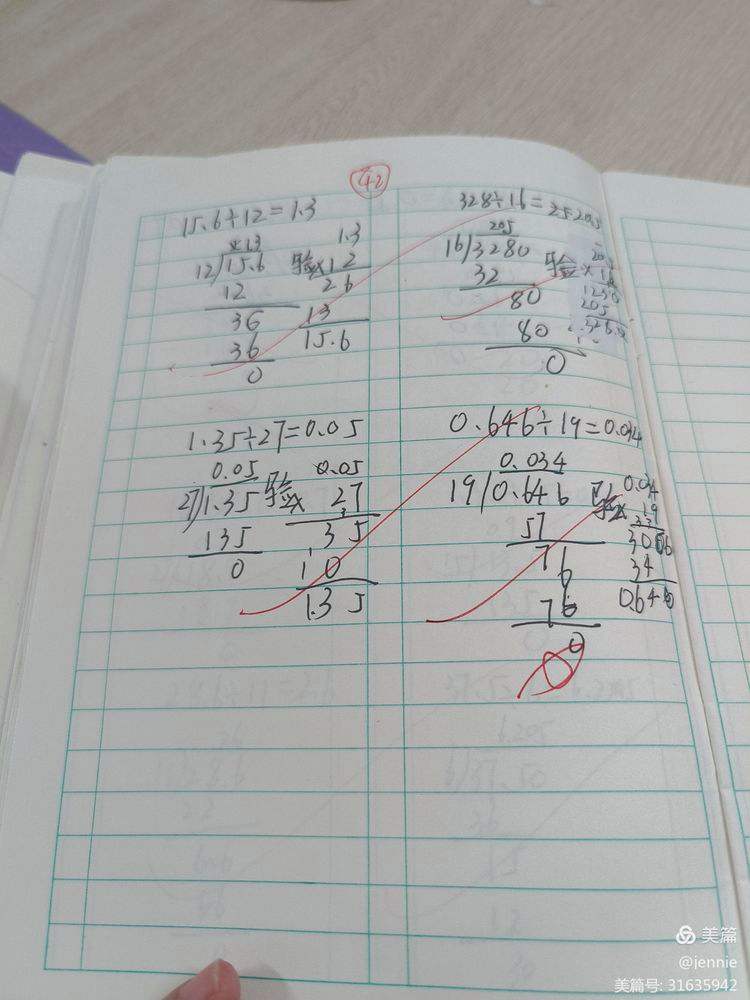 42
15.6÷12=1.3
1.3
12/15.6
12
36
36
0
验
1.3
×12
26
13
15.6
328÷16=
20.5
205
16/3280
32
80
80
0
验
205
1.35÷27=0.05
0.05
27/1.35
135
0
验
0.05
× 27
35
10
1.35
0.646÷19=0.034
0.034
19/0.646
57
76
76
0
验
0.034
× 19
34
美篇
@jennie
美篇号: 31635942